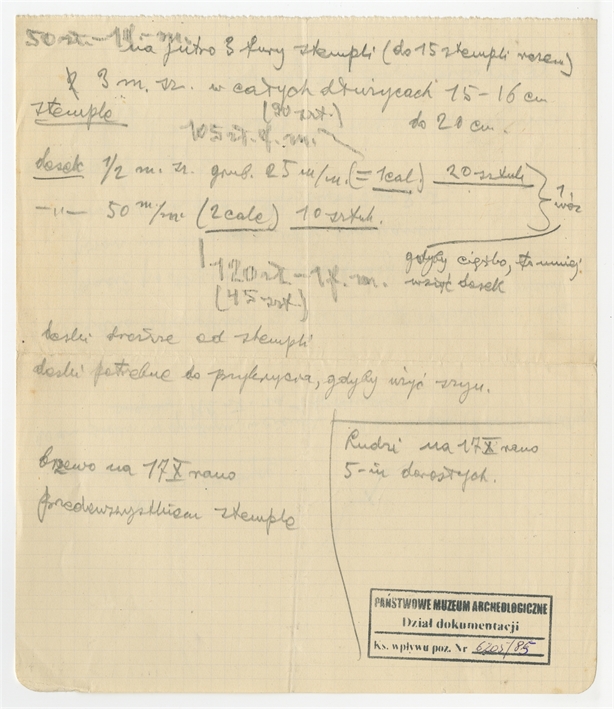 50 zł. – 1 f. m.
na jutro 3 fury stempli (do 15 stempli razem)
3 m. sz. w całych dłużycach 15–16 cm
stemple (90 szt.) do 20 cm.
105 zł. f. m.
desek 1/2 m. sz. grub. 25 m/m. (= 1 cal) 20 sztuk
–„– 50 m/m. (2 cale) 10 sztuk. 1 wóz
120 zł – 1 f. m. gdyby ciężko, to mniej
(45 szt.) wziąć desek
deski droższe od stempli
deski potrzebne do przykrycia, gdyby użyć szyn.
Ludzi na 17 X rano
5-iu dorosłych.
drzewo na 17 X rano
przedewszystkiem stemple
PAŃSTWOWE MUZEUM ARCHEOLOGICZNE
Dział dokumentacji
Ks. wpływu poz. Nr 6205/85